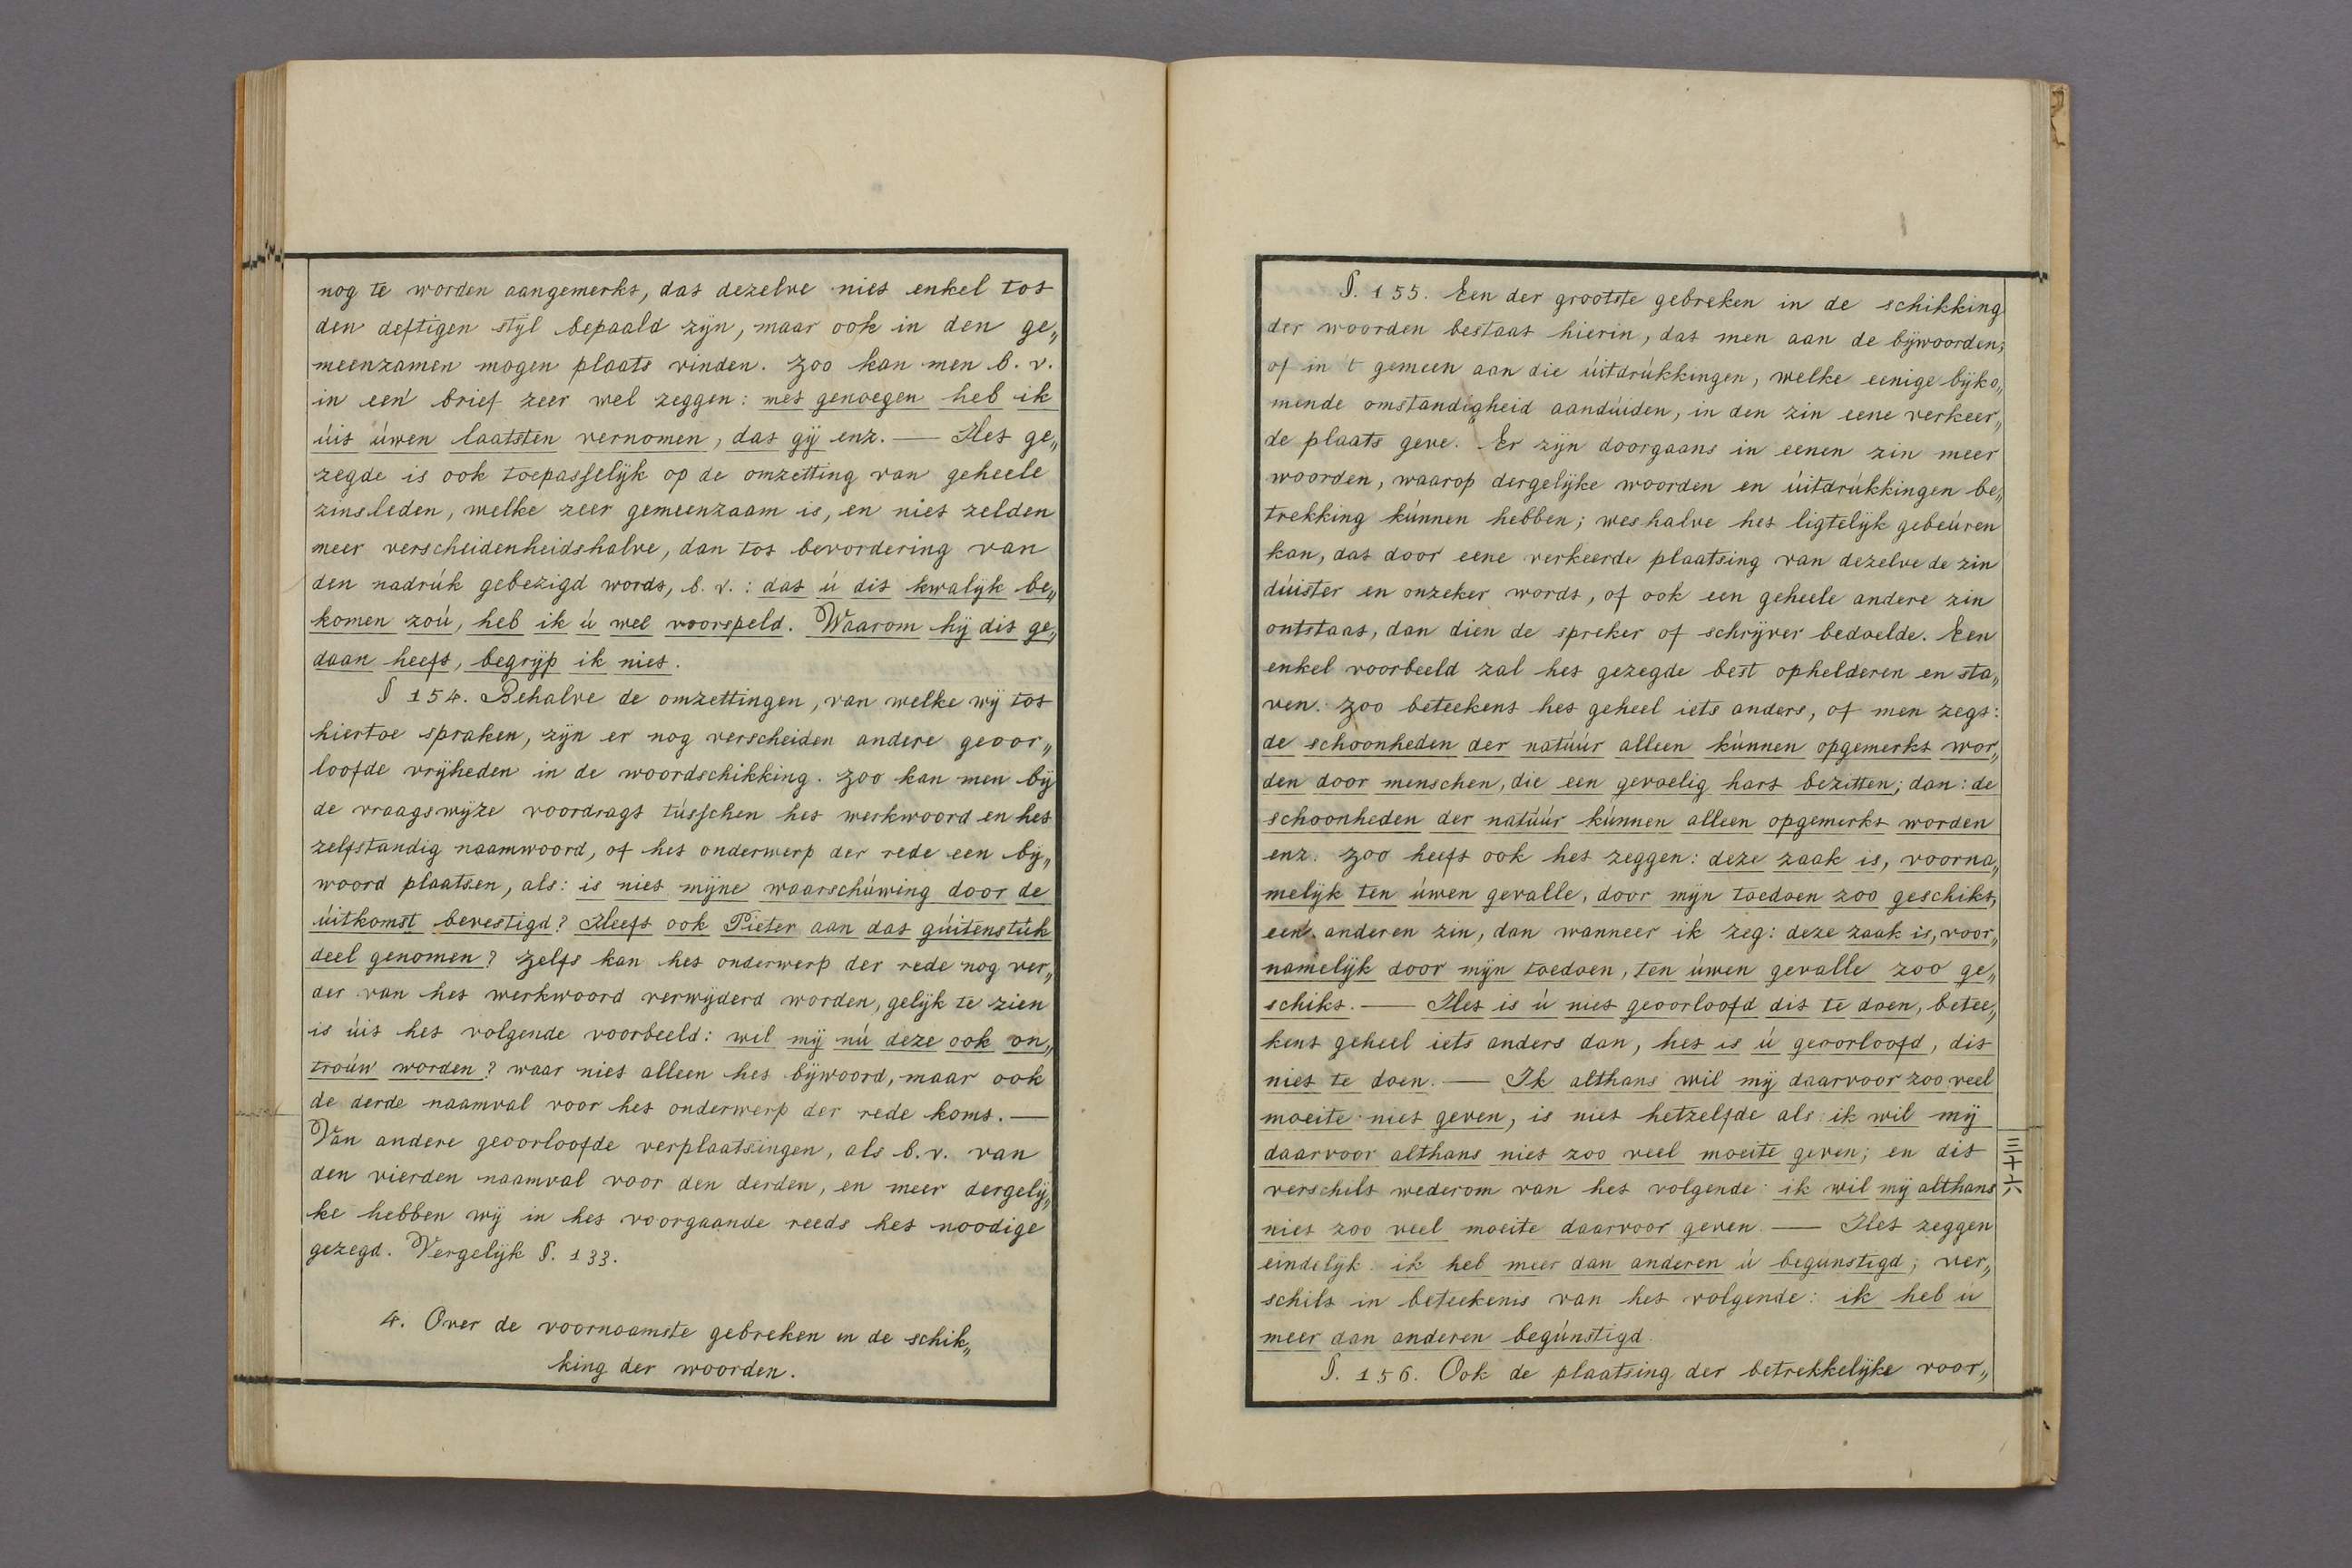 nog te worden aangemerkt, dat dezelve niet enkel tot
den deftigen stijl bepaald zijn, maar ook in den ge„
meenzamen mogen plaats vinden. Zoo kan men b. v.
in een brief zeer wel zeggen: met genoegen heb ik
úit úwen laatsten vernomen, dat gij enz. — Het ge„
zegde is ook toepasselijk op de omzetting van geheele
zinsleden, welke zeer gemeenzaam is, en niet zelden
meer verscheidenheidshalve, dan tot bevordering van
den nadrúk gebezigd wordt, b. v.: dat ú dit kwalijk be„
komen zoú, heb ik ú wel voorspeld. Waarom hij dit ge„
daan heeft, begrijp ik niet.
§ 154. Behalve de omzettingen, van welke wij tot
hiertoe spraken, zijn er nog verscheiden andere geoor„
loofde vrijheden in de woordschikking. Zoo kan men bij
de vraagswijze voordragt tússchen het werkwoord en het
zelfstandig naamwoord, of het onderwerp der rede een bij„
woord plaatsen, als: is niet mijne waarschúwing door de
úitkomst bevestigd? Heeft ook Pieter aan dat gúitenstúk
deel genomen? Zelfs kan het onderwerp der rede nog ver„
der van het werkwoord verwijderd worden, gelijk te zien
is úit het volgende voorbeeld: wil mij nú deze ook on„
troúw worden? waar niet alleen het bijwoord, maar ook
de derde naamval voor het onderwerp der rede komt. —
Van andere geoorloofde verplaatsingen, als b. v. van
den vierden naamval voor den derden, en meer dergelij„
ke hebben wij in het voorgaande reeds het noodige
gezegd. Vergelijk §. 133.
4. Over de voornaamste gebreken in de schik„
king der woorden.
§. 155. Een der grootste gebreken in de schikking
der woorden bestaat hierin, dat men aan de bijwoorden,
of in 't gemeen aan die úitdrúkkingen, welke eenige bijko„
mende omstandigheid aandúiden, in den zin eene verkeer„
de plaats geve. Er zijn doorgaans in eenen zin meer
woorden, waarop dergelijke woorden en úitdrúkkingen be„
trekking kúnnen hebben; weshalve het ligtelijk gebeúren
kan, dat door eene verkeerde plaatsing van dezelve de zin
dúister en onzeker wordt, of ook een geheele andere zin
ontstaat, dan dien de spreker of schrijver bedoelde. Een
enkel voorbeeld zal het gezegde best ophelderen en sta„
ven. Zoo beteekent het geheel iets anders, of men zegt:
de schoonheden der natúúr alleen kúnnen opgemerkt wor„
den door menschen, die een gevoelig hart bezitten; dan: de
schoonheden der natúúr kúnnen alleen opgemerkt worden
enz. Zoo heeft ook het zeggen: deze zaak is, voorna„
melijk ten úwen gevalle, door mijn toedoen zoo geschikt,
een anderen zin, dan wanneer ik zeg: deze zaak is, voor„
namelijk door mijn toedoen, ten úwen gevalle zoo ge„
schikt. — Het is ú niet geoorloofd dit te doen, betee„
kent geheel iets anders dan, het is ú geoorloofd, dit
niet te doen. — Ik althans wil mij daarvoor zoo veel
moeite niet geven, is niet hetzelfde als: ik wil mij
daarvoor althans niet zoo veel moeite geven; en dit
verschilt wederom van het volgende: ik wil mij althans
niet zoo veel moeite daarvoor geven. — Het zeggen
eindelijk: ik heb meer dan anderen ú begunstigd; ver„
schilt in beteekenis van het volgende: ik heb ú
meer dan anderen begúnstigd.
§. 156. Ook de plaatsing der betrekkelijke voor„
三十六